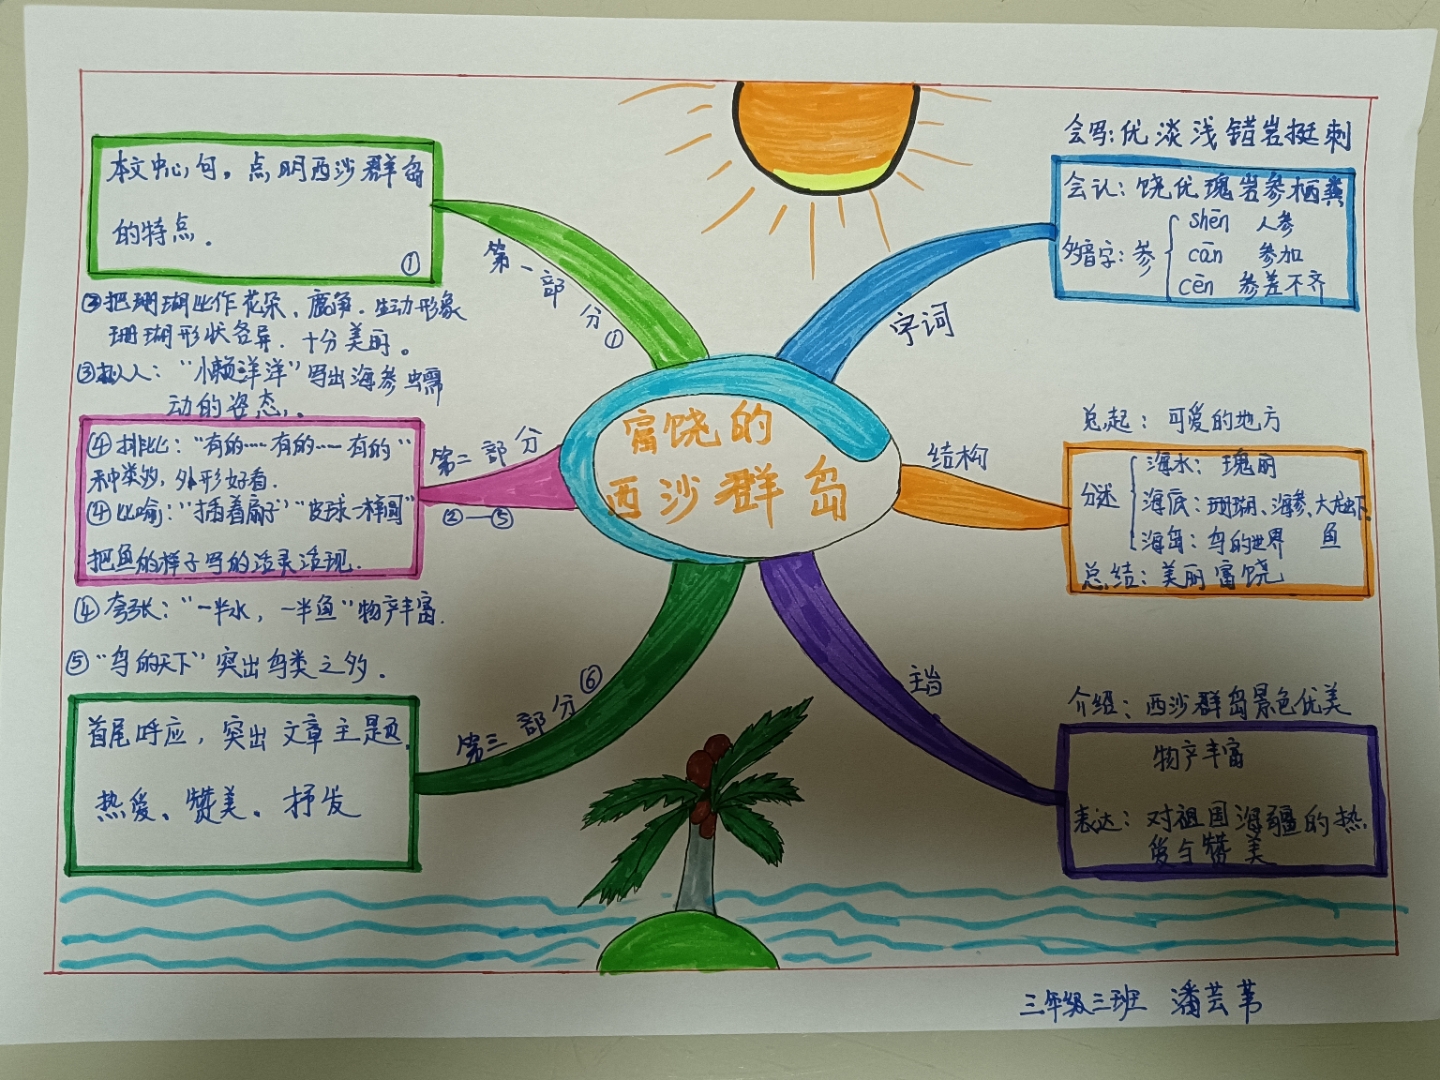 富饶的
西沙群岛
第一部分①
本文中心句。点明西沙群岛
的特点.
①
②把珊瑚比作花朵、鹿角.生动形象
珊瑚形状各异.十分美丽。
③拟人:“懒洋洋”写出海参蠕
动的姿态。
第二部分
②—⑤
④排比:“有的……有的……有的”
种类多,外形好看.
④比喻:“插着扇子”“皮球一样圆”
把鱼的样子写的活灵活现.
④夸张:“一半水,一半鱼”物产丰富.
⑤“鸟的天下”突出鸟类之多.
第三部分⑥
首尾呼应,突出文章主题.
热爱、赞美、抒发
字词
会写:优淡浅错岩挺刺
会认:饶优瑰岩参栖粪
多音字:参
shēn 人参
cān 参加
cēn 参差不齐
结构
总起:可爱的地方
分述
海水:瑰丽
海底:珊瑚、海参、大龙虾、
鱼
海岛:鸟的世界
总结:美丽富饶
主旨
介绍:西沙群岛景色优美
物产丰富
表达:对祖国海疆的热
爱与赞美
三年级三班 潘芸苇